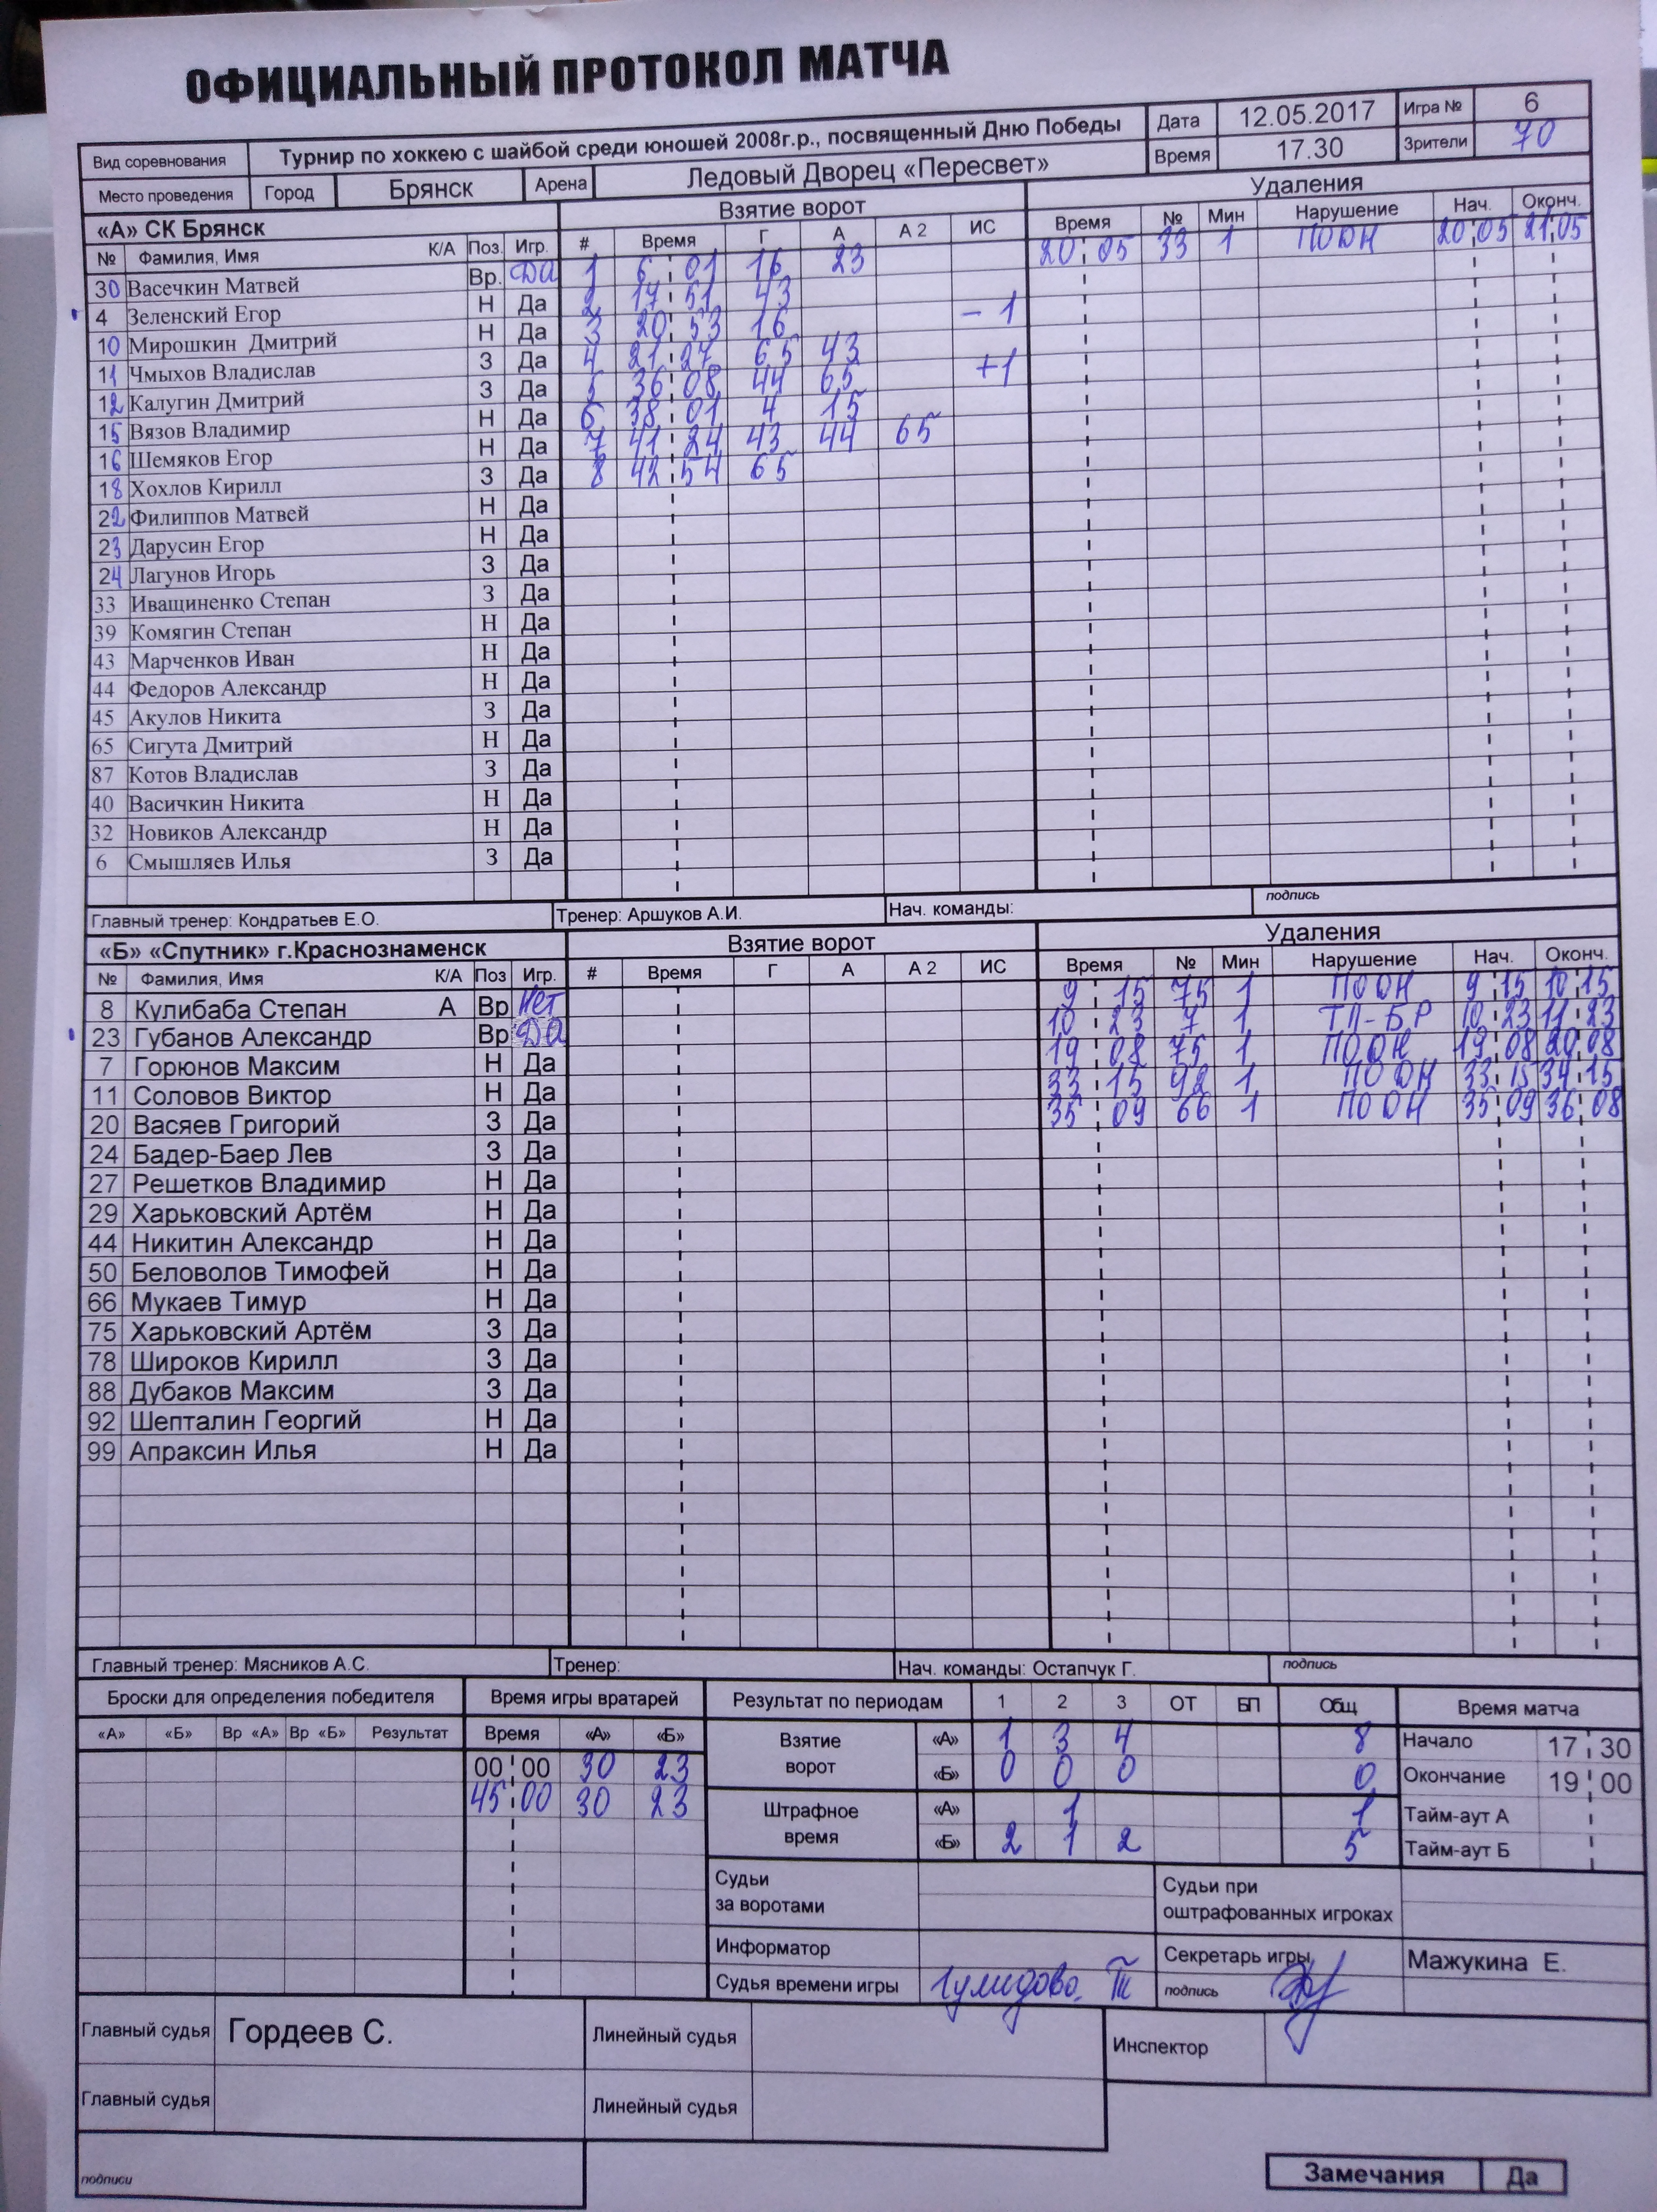 ОФИЦИАЛЬНЫЙ ПРОТОКОЛ МАТЧА
Вид соревнования Турнир по хоккею с шайбой среди юношей 2008г.р., посвященный Дню Победы Дата 12.05.2017 Игра № 6
Место проведения Город Брянск Арена Ледовый Дворец «Пересвет» Время 17.30 Зрители 70
«А» СК Брянск Взятие ворот Удаления
№ Фамилия, Имя К/А Поз. Игр. # Время Г А А 2 ИС Время № Мин Нарушение Нач. Оконч.
30 Васечкин Матвей Вр. Да 1 6 01 16 23 20 05 33 1 ПООН 20 05 21 05
4 Зеленский Егор Н Да 2 17 51 43
10 Мирошкин Дмитрий Н Да 3 20 53 16 -1
11 Чмыхов Владислав З Да 4 21 27 65 43
12 Калугин Дмитрий З Да 5 36 08 44 65 +1
15 Вязов Владимир Н Да 6 38 01 4 15
16 Шемяков Егор Н Да 7 41 24 43 44 65
18 Хохлов Кирилл З Да 8 42 54 65
22 Филиппов Матвей Н Да
23 Дарусин Егор Н Да
24 Лагунов Игорь З Да
33 Иващиненко Степан З Да
39 Комягин Степан Н Да
43 Марченков Иван Н Да
44 Федоров Александр Н Да
45 Акулов Никита З Да
65 Сигута Дмитрий Н Да
87 Котов Владислав З Да
40 Васичкин Никита Н Да
32 Новиков Александр Н Да
6 Смышляев Илья З Да
Главный тренер: Кондратьев Е.О. Тренер: Аршуков А.И. Нач. команды: подпись
«Б» «Спутник» г.Краснознаменск Взятие ворот Удаления
№ Фамилия, Имя К/А Поз Игр. # Время Г А А 2 ИС Время № Мин Нарушение Нач. Оконч.
8 Кулибаба Степан А Вр Нет 9 15 75 1 ПООН 9 15 10 15
23 Губанов Александр Вр Да 10 23 7 1 ТП-БР 10 23 11 23
7 Горюнов Максим Н Да 19 08 75 1 ПООН 19 08 20 08
11 Соловов Виктор Н Да 33 15 92 1 ПООН 33 15 34 15
20 Васяев Григорий З Да 35 09 66 1 ПООН 35 09 36 08
24 Бадер-Баер Лев З Да
27 Решетков Владимир Н Да
29 Харьковский Артём Н Да
44 Никитин Александр Н Да
50 Беловолов Тимофей Н Да
66 Мукаев Тимур Н Да
75 Харьковский Артём З Да
78 Широков Кирилл З Да
88 Дубаков Максим З Да
92 Шепталин Георгий Н Да
99 Апраксин Илья Н Да
Главный тренер: Мясников А.С. Тренер: Нач. команды: Остапчук Г. подпись
Броски для определения победителя Время игры вратарей Результат по периодам 1 2 3 ОТ БП Общ Время матча
«А» «Б» Вр «А» Вр «Б» Результат Время «А» «Б» Взятие ворот «А» 1 3 4 8 Начало 17 30
00 00 30 23 «Б» 0 0 0 0 Окончание 19 00
45 00 30 23 Штрафное время «А» 1 1 Тайм-аут А
«Б» 2 1 2 5 Тайм-аут Б
Судьи за воротами Судьи при оштрафованных игроках
Информатор Секретарь игры Мажукина Е.
Судья времени игры подпись
Главный судья Гордеев С. Линейный судья Инспектор
Главный судья Линейный судья
подписи
Замечания Да